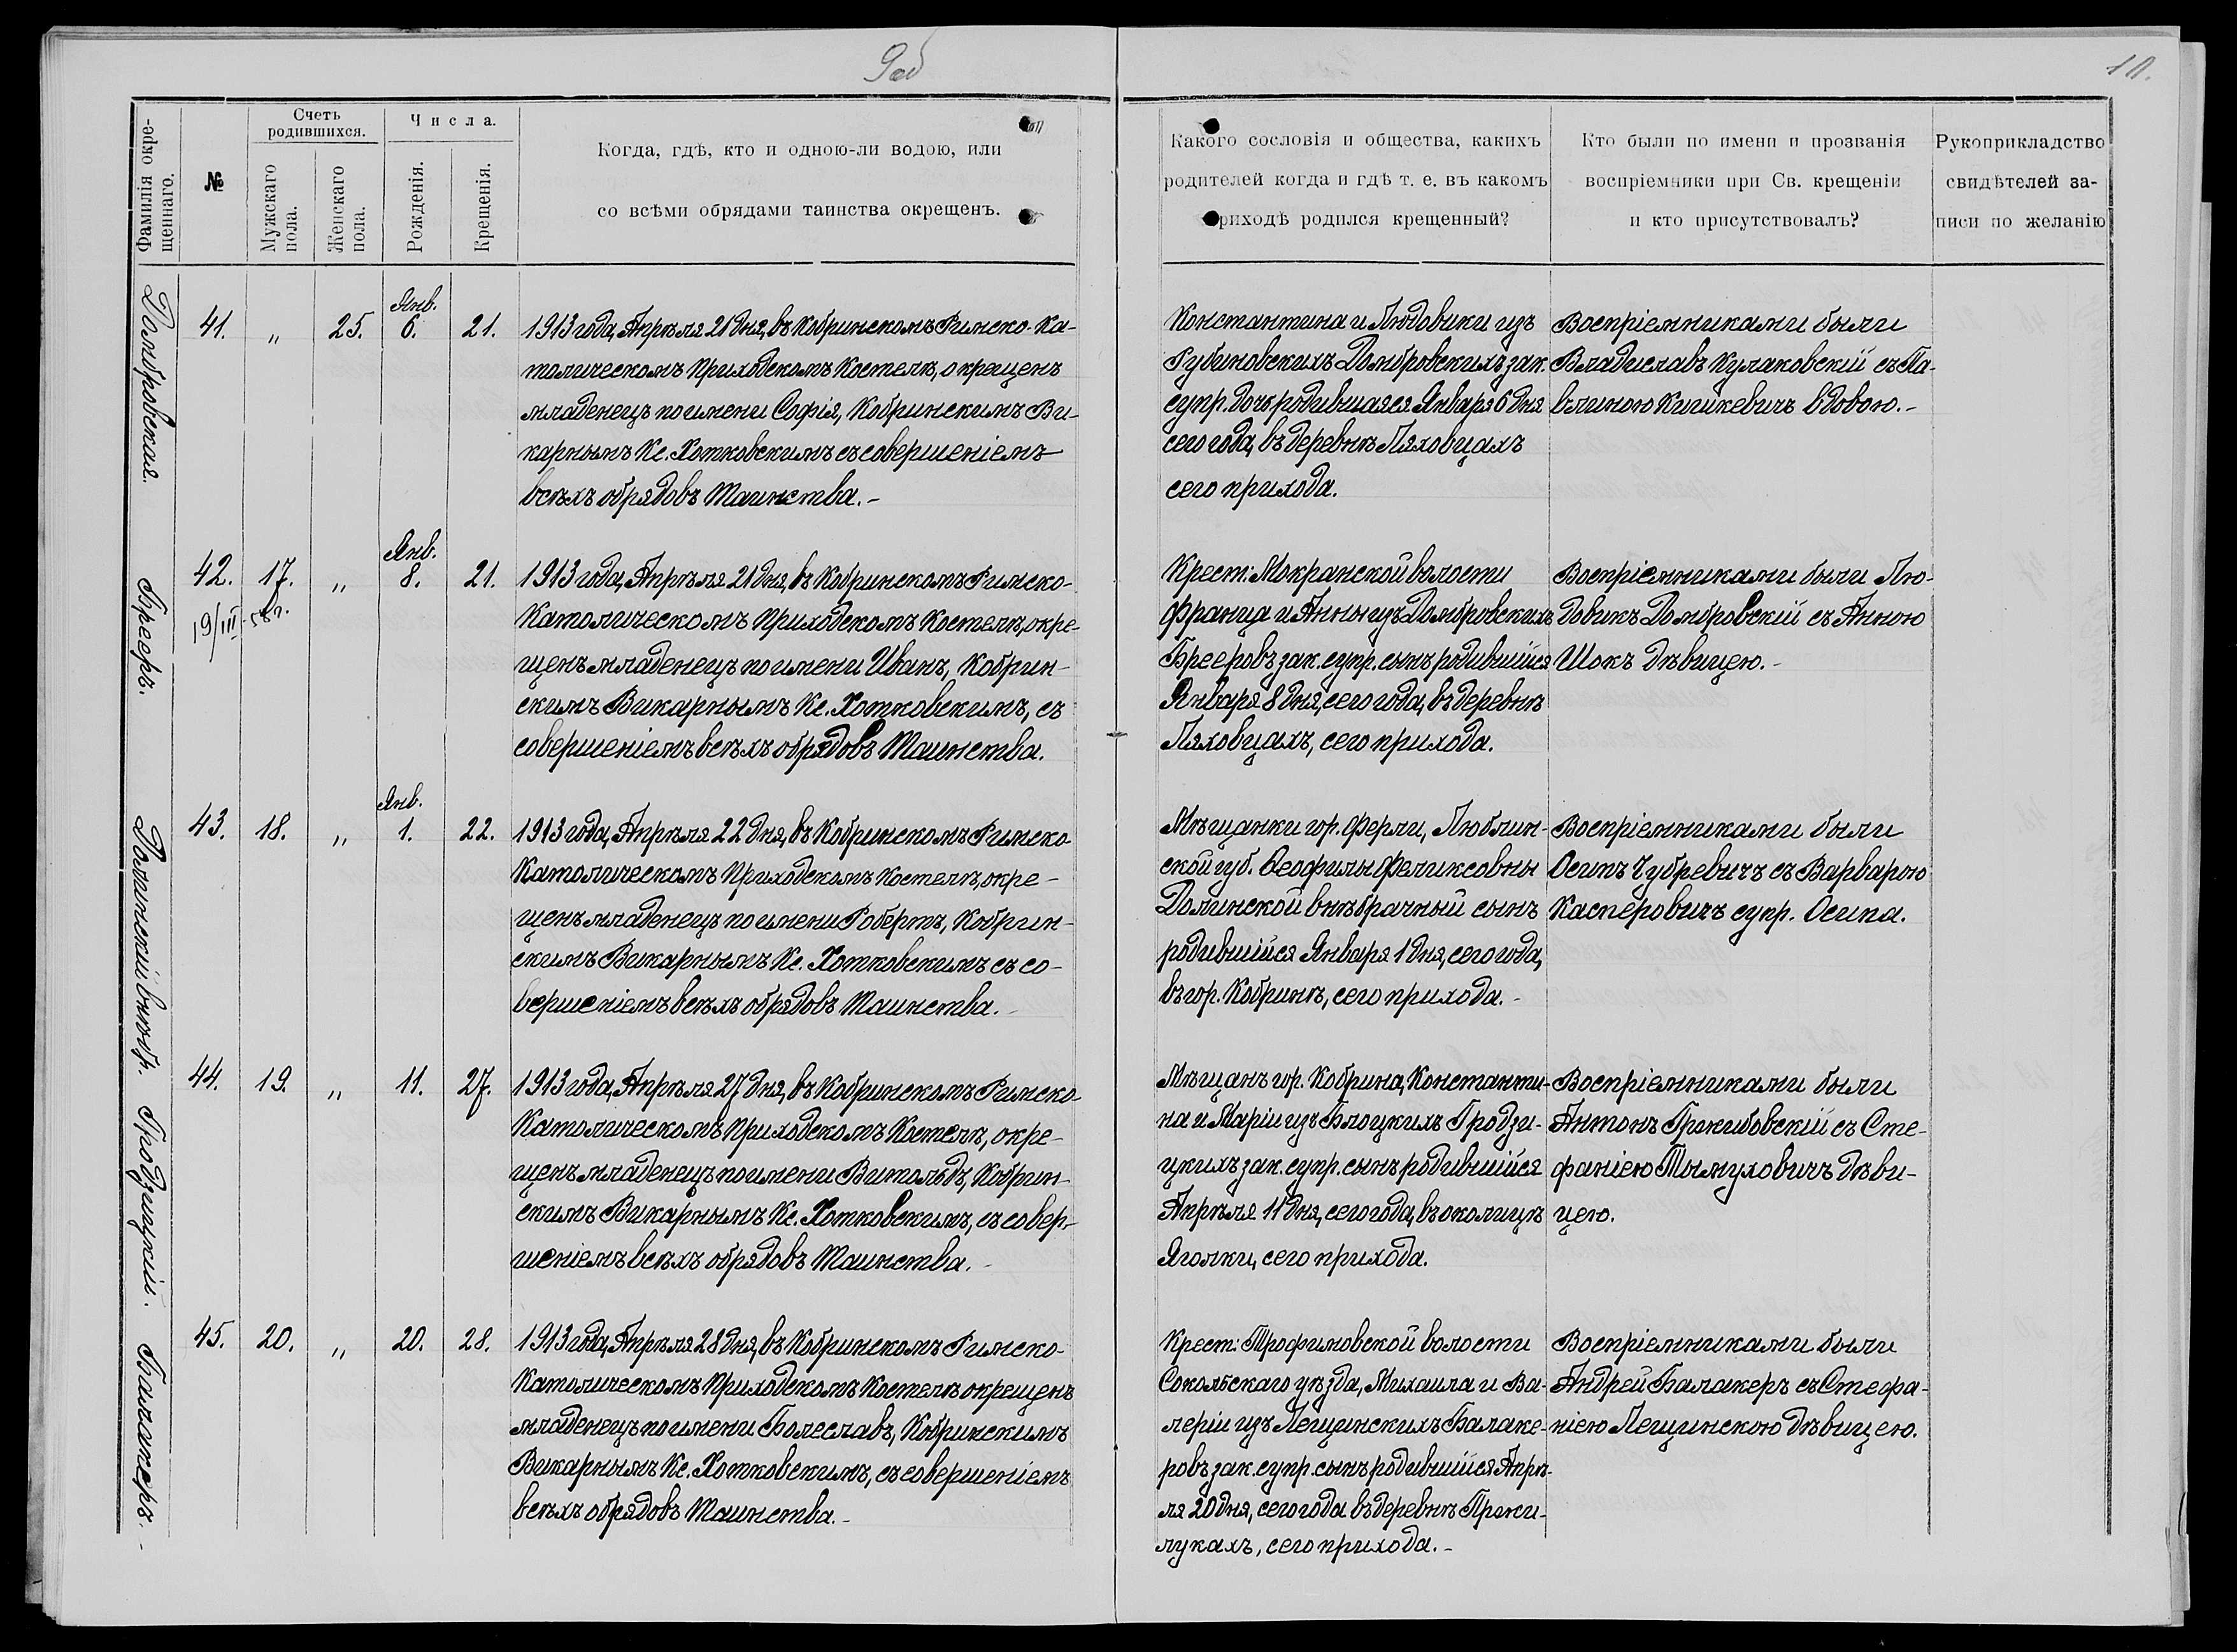 9об
10.
Фамилія окре-
щеннаго.
№
Счетъ
родившихся.
Мужскаго
пола.
Женскаго
пола.
Числа.
Рожденія.
Крещенія.
Когда, гдѣ, кто и одною-ли водою, или
со всѣми обрядами таинства окрещенъ.
Какого сословія и общества, какихъ
родителей когда и гдѣ т. е. въ какомъ
приходѣ родился крещенный?
Кто были по имени и прозванія
воспріемники при Св. крещеніи
и кто присутствовалъ?
Рукоприкладство
свидѣтелей за-
писи по желанію
Домбровская.
41. „ 25. Янв. 6. 21.
1913 года, Апрѣля 21 дня, въ Кобринскомъ Римско-Ка-
толическомъ Приходскомъ Костелѣ, окрещенъ
младенецъ по имени Софія, Кобринскимъ Ви-
карнымъ Кс. Хотковскимъ съ совершеніемъ
всѣхъ обрядовъ Таинства.-
Константина и Людовики изъ
Губиновскихъ Домбровскихъ зак.
супр. дочь родившаяся Января 6 дня
сего года, въ деревнѣ Ляховцахъ
сего прихода.
Воспріемниками были
Владиславъ Кулаковскій съ Па-
влиною Кишкевичъ вдовою.-
Брееръ.
42. 17. „ Янв. 8. 21.
19/III-58г.
1913 года, Апрѣля 21 дня, въ Кобринскомъ Римско-
Католическомъ Приходскомъ Костелѣ, окре-
щенъ младенецъ по имени Иванъ, Кобрин-
скимъ Викарнымъ Кс. Хотковскимъ, съ
совершеніемъ всѣхъ обрядовъ Таинства.
Крест: Мокранской волости
Франца и Анны изъ Домбровскихъ
Брееровъ зак. супр. сынъ родившійся
Января 8 дня, сего года, въ деревнѣ
Ляховцахъ, сего прихода.
Воспріемниками были Лю-
довикъ Домбровскій съ Анною
Шокъ дѣвицею.-
Долинскій внѣбр.
43. 18. „ Янв. 1. 22.
1913 года, Апрѣля 22 дня, въ Кобринскомъ Римско-
Католическомъ Приходскомъ Костелѣ, окре-
щенъ младенецъ по имени Робертъ, Кобрин-
скимъ Викарнымъ Кс. Хотковскимъ съ со-
вершеніемъ всѣхъ обрядовъ Таинства.-
Мѣщанки гор. Ферли, Люблин-
ской губ. Ѳеофилы Феликсовны
Долинской внѣбрачный сынъ
родившійся Января 1 дня, сего года,
въ гор. Кобринѣ, сего прихода.-
Воспріемниками были
Осипъ Чубревичъ съ Варварою
Касперовичъ супр. Осипа.
Гродзицкій.
44. 19. „ 11. 27.
1913 года, Апрѣля 27 дня, въ Кобринскомъ Римско-
Католическомъ Приходскомъ Костелѣ, окре-
щенъ младенецъ по имени Витольдъ, Кобрин-
скимъ Викарнымъ Кс. Хотковскимъ, съ совер-
шеніемъ всѣхъ обрядовъ Таинства.-
Мѣщанъ гор. Кобрина, Константи-
на и Маріи изъ Блоцкихъ Гродзи-
цкихъ зак. супр. сынъ родившійся
Апрѣля 11 дня, сего года, въ околицѣ
Яголки, сего прихода.
Воспріемниками были
Антонъ Гржибовскій съ Сте-
фаніею Тымуховичъ дѣви-
цею.
Балакеръ.-
45. 20. „ 20. 28.
1913 года, Апрѣля 28 дня, въ Кобринскомъ Римско-
Католическомъ Приходскомъ Костелѣ окрещенъ
младенецъ по имени Болеславъ, Кобринскимъ
Викарнымъ Кс. Хотковскимъ, съ совершеніемъ
всѣхъ обрядовъ Таинства.-
Крест: Трофимовской волости
Сокольскаго уѣзда, Михаила и Ва-
леріи изъ Лещинскихъ Балаке-
ровъ зак. супр. сынъ родившійся Апрѣ-
ля 20 дня, сего года въ деревнѣ
лукахъ, сего прихода.-
Воспріемниками были
Андрей Балакеръ съ Стефа-
ніею Лещинскою дѣвицею.